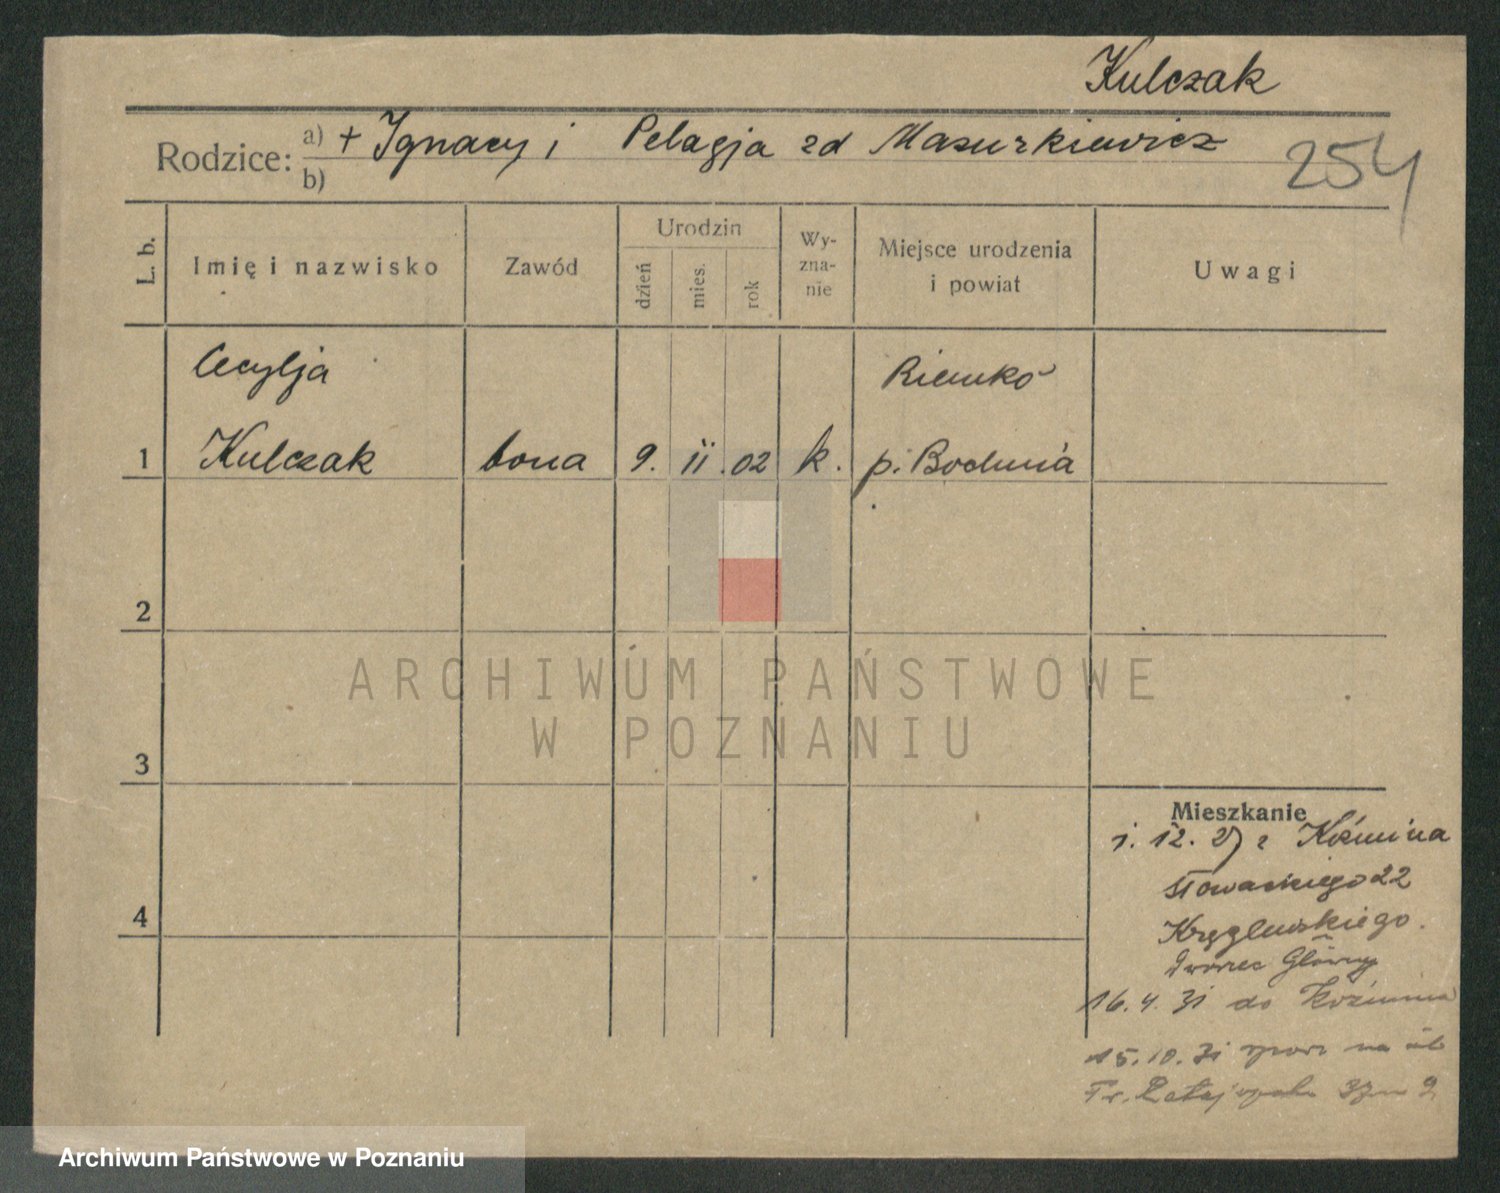 Kulczak
Rodzice: a) + Ignacy i Pelagja zd Mazurkiewicz
b)
254
L. b.
Imię i nazwisko
Zawód
Urodzin
dzień
mies.
rok
Wy-
zna-
nie
Miejsce urodzenia
i powiat
Uwagi
Cecylja
1 Kulczak bona 9. 11. 02 k. p. Bochnia
2
3
4
Mieszkanie
1. 12. 27 z Koźmina
Słowackiego 22
Dworzec Główny
16.4.31 do Koźmina
15.10.31 na
Fr. Ratajczaka
ARCHIWUM PAŃSTWOWE
W POZNANIU
Archiwum Państwowe w Poznaniu